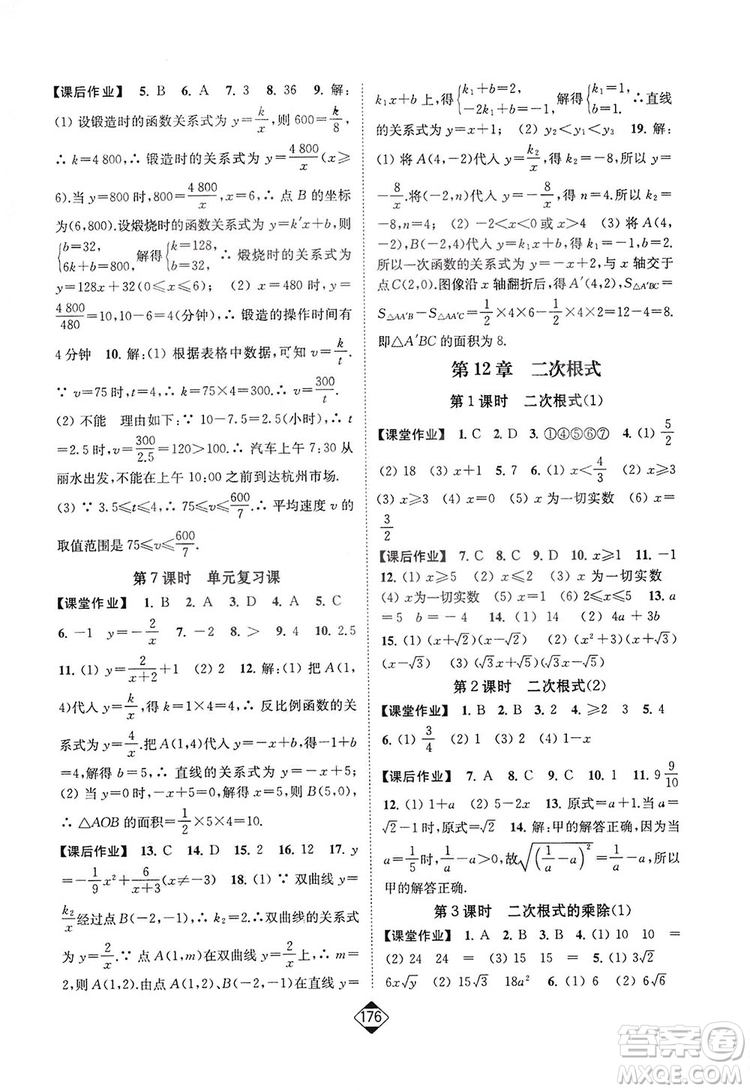 【课后作业】 5. B 6. A 7. 3 8. 36 9. 解:
(1) 设锻造时的函数关系式为 y=k/x,则 600=k/8,
∴ k=4 800,∴ 锻造时的关系式为 y=4 800/x(x≥
6).当 y=800 时,800=4 800/x,x=6,∴ 点 B 的坐标
为(6,800).设煅烧时的函数关系式为 y=k′x+b,则
{b=32, 6k+b=800, 解得{k=128, b=32, ∴ 煅烧时的关系式为
y=128x+32(0<x≤6) (2) x=480 时,y=
4 800/480=10,10-6=4(分钟),∴ 锻造的操作时间有
4 分钟 10. 解:(1) 根据表格中数据,可知 v=k/t.
∵ v=75 时,t=4,∴ k=75×4=300.∴ v=300/t
(2) 不能 理由如下:∵ 10-7.5=2.5(小时),∴ t=
2.5 时,v=300/2.5=120>100.∴ 汽车上午 7:30 从
丽水出发,不能在上午 10:00 之前到达杭州市场.
(3) ∵ 3.5≤t≤4,∴ 75≤v≤600/7.∴ 平均速度 v 的
取值范围是 75≤v≤600/7.
第 7 课时 单元复习课
【课堂作业】 1. B 2. A 3. D 4. A 5. C
6. -1 y=-2/x 7. 2 8. > 9. 4 10. 2.5
11. (1) y=2/(x+2)+1 (2) 2 12. 解:(1) 把 A(1,
4)代入 y=k/x,得 k=1×4=4,∴ 反比例函数的关
系式为 y=4/x.把 A(1,4)代入 y=-x+b,得-1+b
=4,解得 b=5,∴ 直线的关系式为 y=-x+5;
(2)
∴ △AOB 的面积=1/2×5×4=10.
【课后作业】 13. C 14. D 15. 2 16. 12 17. y=
-1/9x²+6/(x+3)(x≠-3) 18. (1) ∵ 双曲线 y=
k₂/x经过点 B(-2,-1),∴ 双曲线的关系式为 y=
2/x.∵ 点 A(1,m)在双曲线 y=2/x上,∴ m=
2,即A(1,2).∵ 点 A(1,2)、B(-2,-1)在直线 y=
k₁x+b 上,得{k₁+b=2, -2k₁+b=-1, 解得{k₁=1, b=1, ∴ 直线
的关系式为 y=x+1; (2) y₂<y₁<y₃ 19. 解:
(1) 将 A(4,-2)代入 y=k₂/x,得 k₂=-8.∴ y=
-8/x.将(-2,n)代入 y=-8/x,得 n=4.∴ k₂=
-8,n=4 (2) -2<x<0 或 x>4 (3) 将 A(4,
-2),B(-2,4)代入 y=k₁x+b,得 k₁=-1,b=2.
所以一次函数的关系式为 y=-x+2,与 x 轴交于
点 C(2,0).图像沿 x 轴翻折后,得 A′(4,2),S△A′BC=
S△AA′B-S△AA′C=1/2×4×6-1/2×4×2=8.
即△A′BC 的面积为 8.
第 12 章 二次根式
第 1 课时 二次根式(1)
【课堂作业】 1. C 2. D 3. ①④⑤⑥⑦ 4. (1) 5/2
(2) 18 (3) x+1 5. 7 6. (1) x<4/3 (2) x≥3
(3) 0≤x≤1 (4) x=0 (5) x 为一切实数 (6) x=
3/2
【课后作业】 7. C 8. C 9. D 10. x≥1 11. -1
12. (1) x≥5 (2) x≥-2 且 x≠0 (3) x 为一切实数
(4) x 为一切实数 (5) 2≤x≤5 (6) x=0 13. a=
5 b=-4 14. (1) 0 (2) 4a+3b
15. (1) (x+√2)(x-√2) (2) (x²+3)(x+√3)
(x-√3) (3) (x+√5)²(x-√5)²
第 2 课时 二次根式(2)
【课堂作业】 1. B 2. B 3. C 4. ≥2 5. 4
6. (1) 3/4 (2) -10 (3) 2 (4) 1-x
【课后作业】 7. A 8. B 9. D 10. 1 11. 9 9/10
12. (1) 1+a (2) 5-2x 13. 原式=a.当a=√2
时,原式=√2 14. 解:甲的解答正确.∵ 当a=1/5
时,1/a=5,∴ 1/a-a>0,故√((1/a-a)²)=1/a-a.所以
甲的解答正确.
第 3 课时 二次根式的乘除(1)
【课堂作业】 1. A 2. D 3. B 4. (1) 10 10 =
(2) 24 24 = (3) 15 15 = 5. (1) 3√2
(2) 4√3 (3) 15 (4) 18a² 6. (1) 2√15 (2)
6x√y (3) 2 7. (1) 0 (2) 60 (3) 6√2 (4) 6√6
176
答案圈
MXQE.COM